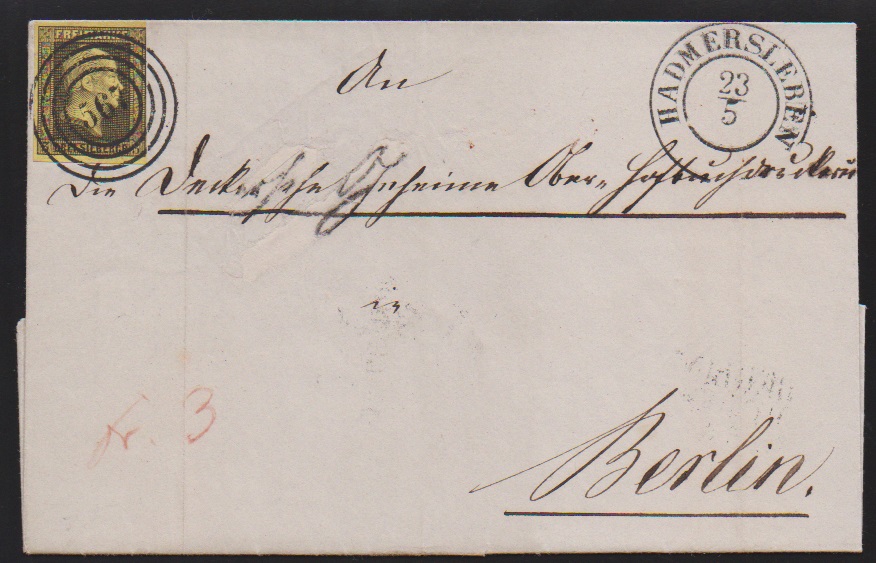 FREIMARKE
563
SILBERGR.
HADMERSLEBEN
23
5
An
Die Deckersche Geheime Ober- Hofbuchdruckerei
in
fr. 3
Berlin.